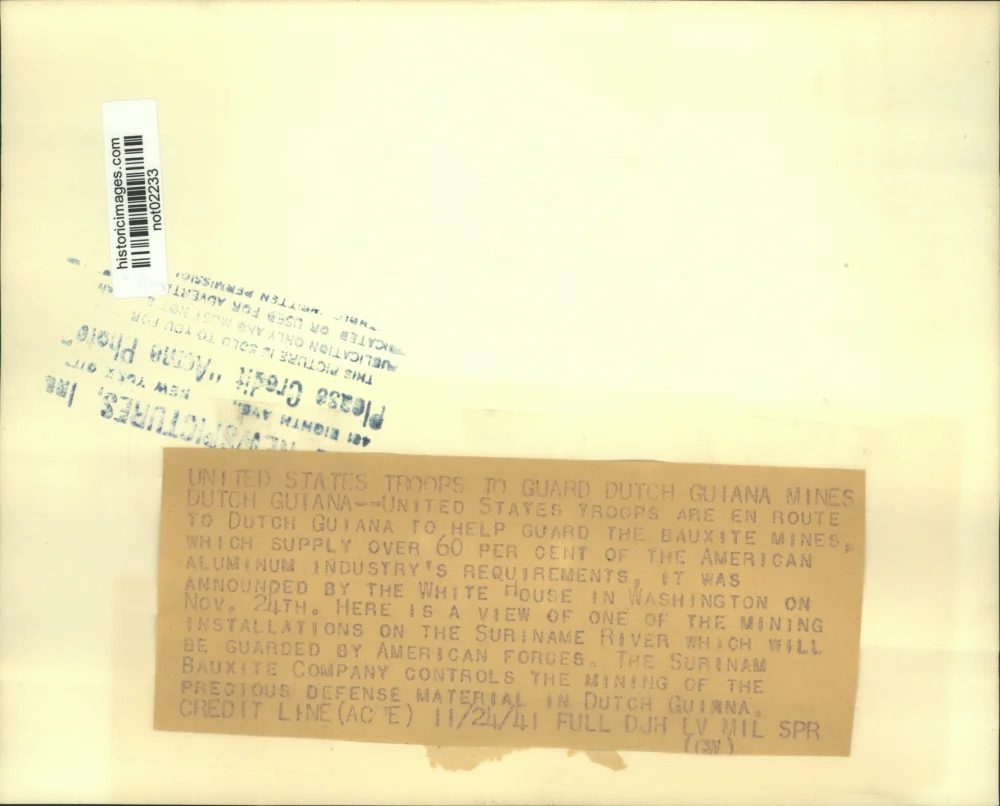 historicimages.com
not02233
NEWSPICTURES, Inc.
461 EIGHTH AVE., NEW YORK CITY
Please Credit "Acme Photo"
THIS PICTURE IS SOLD TO YOU FOR
PUBLICATION ONLY AND MUST NOT
OR USED FOR
WRITTEN PERMISSION
UNITED STATES TROOPS TO GUARD DUTCH GUIANA MINES
DUTCH GUIANA--UNITED STATES TROOPS ARE EN ROUTE
TO DUTCH GUIANA TO HELP GUARD THE BAUXITE MINES,
WHICH SUPPLY OVER 60 PER CENT OF THE AMERICAN
ALUMINUM INDUSTRY'S REQUIREMENTS, IT WAS
ANNOUNCED BY THE WHITE HOUSE IN WASHINGTON ON
NOV. 24TH. HERE IS A VIEW OF ONE OF THE MINING
INSTALLATIONS ON THE SURINAME RIVER WHICH WILL
BE GUARDED BY AMERICAN FORCES. THE SURINAM
BAUXITE COMPANY CONTROLS THE MINING OF THE
PRECIOUS DEFENSE MATERIAL IN DUTCH GUIANA.
CREDIT LINE (ACME) 11/24/41 FULL DJH LV MIL SPR
(GW)